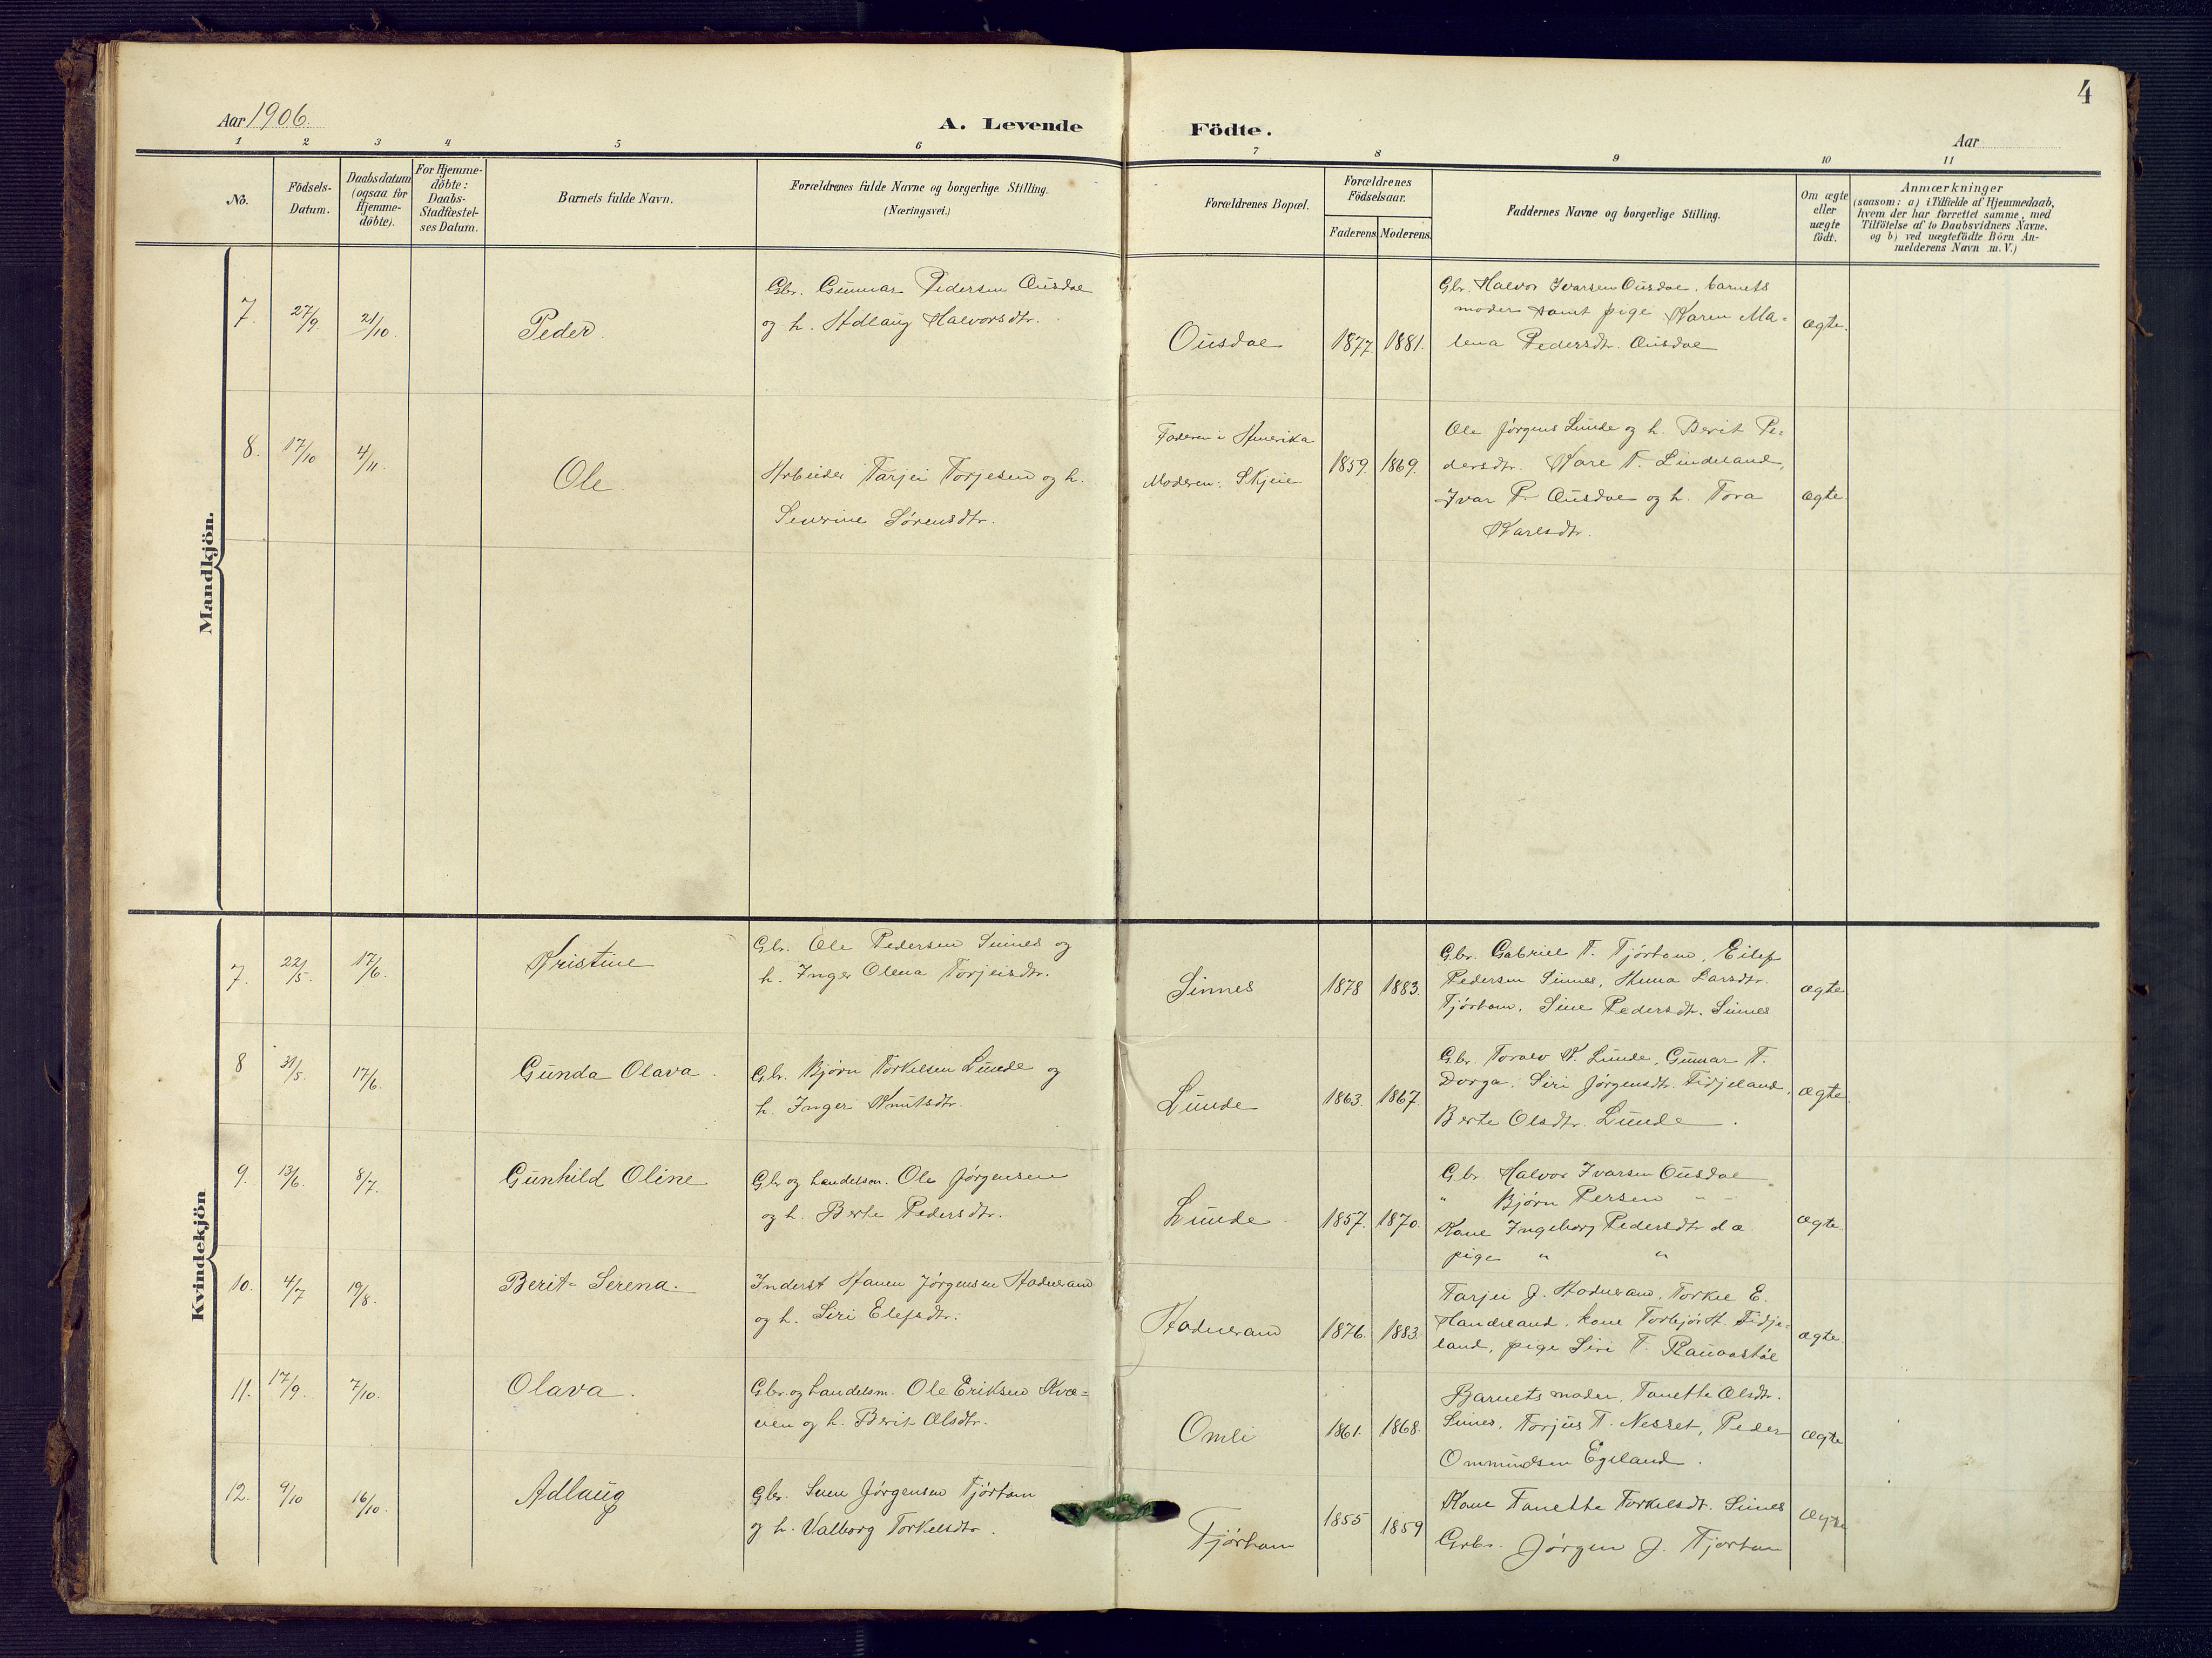 4
Aar 1906.
A. Levende Födte.
Aar
1 2 3 4 5 6 7 8 9 10 11
No.
Födsels-
Datum.
Daabsdatum
(ogsaa for
Hjemme-
döbte).
For Hjemme-
döbte:
Daabs-
Stadfæstel-
ses Datum.
Barnets fulde Navn.
Forældrenes fulde Navne og borgerlige Stilling.
(Næringsvei.)
Forældrenes Bopæl.
Forældrenes
Födselsaar.
Faderens. Moderens.
Faddernes Navne og borgerlige Stilling.
Om ægte
eller
uægte
födt.
Anmærkninger
(saasom: a) i Tilfælde af Hjemmedaab,
hvem der har forrettet samme, med
Tilföielse af to Daabsvidners Navne.
og b) ved uægtefödte Börn An-
melderens Navn m. V.)
Mandkjön.
7. 27/9 21/10 Peder.
Gbr. Gunnar Pedersen Ousdal
og h. Adlaug Halvorsdtr.
Ousdal 1877. 1881.
Gbr. Halvor Ivarsen Ousdal, barnets
moder samt pige Karen Ma-
lena Pedersdtr. Ousdal
ægte.
8. 17/10 4/11. Ole.
Arbeider Tarjei Torjesen og h.
Severine Sørensdtr.
Faderen i Amerika
Moderen: Skjeie
1859. 1869.
Ole Jørgens Lunde og h. Berit Pe-
dersdtr. Kare T. Lindeland,
Ivar P. Ousdal og h. Tora
Karlsdtr.
ægte.
Kvindekjön
7. 22/5. 17/6. Kristine
Gbr. Ole Pedersen Sinnes og
h. Inger Olena Torjeisdtr.
Sinnes 1878 1883.
Gbr. Gabriel T. Tjörham, Eilef
Pedersen Sinnes, Anna Larsdtr.
Tjörham, Sine Pedersdtr. Sinnes
ægte
8 31/5. 17/6. Gunda Olava.
Gbr. Bjørn Torkelsen Lunde og
h. Inger Knutsdtr.
Lunde 1863. 1867.
Gbr. Toralv K. Lunde, Gunnar T.
Dorga, Siri Jørgensdtr. Fidjeland,
Berte Olsdtr. Lunde.
ægte.
9. 13/6. 8/7. Gunhild Oline
Gbr og handelsm. Ole Jørgensen
og h. Berte Pedersdtr.
Lunde 1857. 1870.
Gbr. Halvor Ivarsen Ousdal
" Bjørn Persen " -
Kone Ingeborg Pedersdtr do
pige " "
ægte.
10. 4/7 19/8. Berit-Serena.
Inderst Hanen Jørgensen Haduland
og h. Siri Elefsdtr.
1876. 1883.
Tarjei J. Torkel E.
Handeland, kone Torbjør H. Fidje-
land, pige Siri T.
ægte.
11. 17/9. 7/10. Olava.
Gbr. og handelsm. Ole Eriksen Kvæ-
ven og h. Berit Olsdtr.
Omli 1861. 1868.
Barnets moder, Tanette Olsdtr.
Sinnes, Torjus T. Nesset, Peder
Ommundsen Egeland.
ægte
12. 9/10 16/10. Adlaug
Gbr. Sven Jørgensen Tjörham
og h. Valborg Torkelsdtr.
Tjörham 1855 1859
Kone Tanette Torkelsdt. Sinnes
Grbr. Jørgen J. Tjørham
ægte